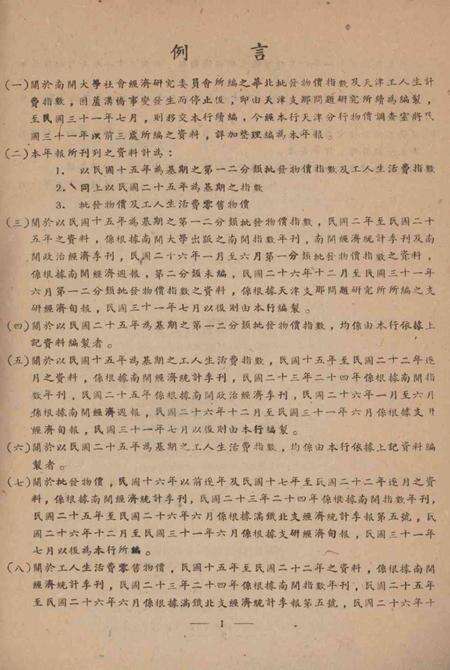 例言
(一)關於南開大學社會經濟研究委員會所編之華北批發物價指數及天津工人生計
費指數，因蘆溝橋事變發生而停止後，即由天津支那問題研究所續為編製，
至民國三十一年七月，則移交本行續編，今經本行天津分行物價調查室將民
國三十一年以前三處所編之資料，詳加整理編為本年報。
(二)本年報所刊列之資料計為：
1. 以民國十五年為基期之第一二分類批發物價指數及工人生活費指數
2. 同上以民國二十五年為基期之指數
3. 批發物價及工人生活費零售物價
(三)關於以民國十五年為基期之第一二分類批發物價指數，民國二年至民國二十
五年之資料，係根據南開大學出版之南開指數年刊，南開經濟統計季刊及南
開政治經濟季刊，民國二十六年一月至六月第一分類批發物價指數之資料，
係根據南開經濟週報，第二分類未編，民國二十六年十二月至民國三十一年
六月第一二分類批發物價指數之資料，係根據天津支那問題研究所所編之支
研經濟旬報，民國三十一年七月以後則由本行編製。
(四)關於以民國二十五年為基期之第一二分類批發物價指數，均係由本行依據上
記資料編製者。
(五)關於以民國十五年為基期之工人生活費指數，民國十五年至民國二十二年逐
月之資料，係根據南開經濟統計季刊，民國二十三年二十四年係根據南開指
數年刊，民國二十五年係根據南開政治經濟季刊，民國二十六年一月至六月
係根據南開經濟週報，民國二十六年十二月至民國三十一年六月係根據支研
經濟旬報，民國三十一年七月以後則由本行編製。
(六)關於以民國二十五年為基期之工人生活費指數，均係由本行依據上記資料編
製者。
(七)關於批發物價，民國十六年以前逐年及民國十七年至民國二十二年逐月之資
料，係根據南開經濟統計季刊，民國二十三年二十四年係根據南開指數年刊，
民國二十五年至民國二十六年六月係根據滿鐵北支經濟統計季報第五號，民
國二十六年十二月至民國三十一年六月係根據支研經濟旬報，民國三十一年
七月以後為本行所編。
(八)關於工人生活費零售物價，民國十五年至民國二十二年之資料，係根據南開
經濟統計季刊，民國二十三年二十四年係根據南開指數年刊，民國二十五年
至民國二十六年六月係根據滿鐵北支經濟統計季報第五號，民國二十六年十
— 1 —